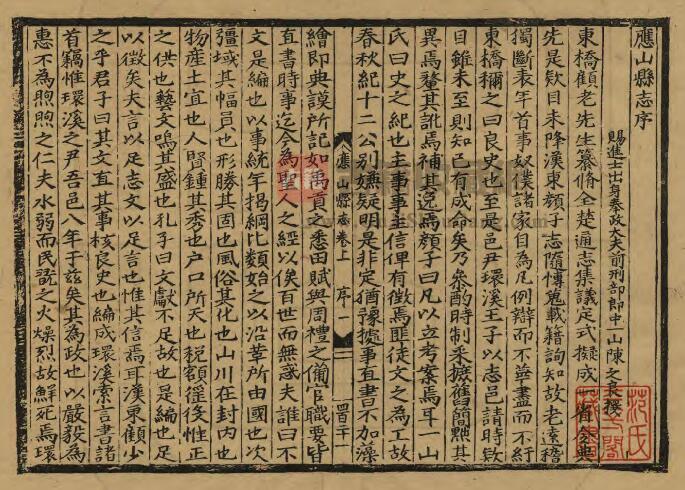 應山縣志序
賜進士出身奉政大夫前刑部郎中一山陳之良撰
東橋顧老先生纂脩全楚通志集議定式擬成一省全典
先是欵目未降漢東顏子志隨博蒐載籍詢知故老索稽
獨斷表年首事奴僕諸家自為凡例辯而不華盡而不紆
東橋獮之曰良史也至是邑尹環溪王子以志邑請時欵
目雖未至則知已有成命矣乃叅酌時制采摭舊簡黜其
異焉鏊其訛焉補其逸焉顏子曰凡以立考案焉耳一山
氏曰史之紀也主事事主信俾有徵焉匪徒文之為工故
春秋紀十二公別嫌疑明是非定猶豫據事直書不加藻
繪即典謨所記如禹貢之悉田賦與周禮之備官職要皆
直書時事迄今為聖人之經以俟百世而無惑夫誰曰不
文是編也以事統年揭綱比類始之以沿革所由國也次
彊域其幅員也形勝其固也風俗其化也山川在封內也
物產土宜也人賢鍾其秀也户口所天也稅額徭役惟正
之供也藝文鳴其盛也孔子曰文獻不足故也是編也足
以徵矣夫言以足志文以足言也惟其信焉耳漢東顧少
之乎君子曰其文直其事核良史也編成環溪索言書諸
首竊惟環溪之尹吾邑八年于茲矣其為政也以嚴毅為
惠不為煦煦之仁夫水弱而民翫之火燥烈故鮮死焉環
應山縣志卷上 序一